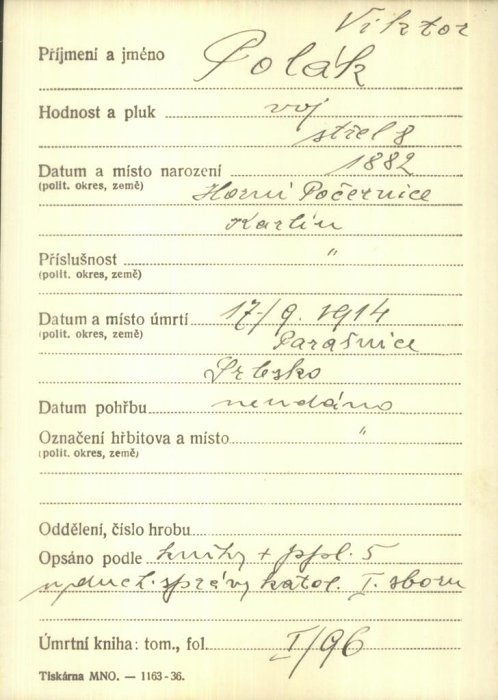 Viktor
Příjmení a jméno Polák
Hodnost a pluk voj
střel 8
Datum a místo narození 1882
(polit. okres, země) Horní Počernice
Karlín
Příslušnost "
(polit. okres, země)
Datum a místo úmrtí 17/9. 1914
(polit. okres, země) Parašnice
Srbsko
Datum pohřbu neudáno
Označení hřbitova a místo "
(polit. okres, země)
Oddělení, číslo hrobu
Opsáno podle knihy + ppl. 5
duch. správy katol. I. sboru
Úmrtní kniha: tom., fol. I/96
Tiskárna MNO. — 1163-36.